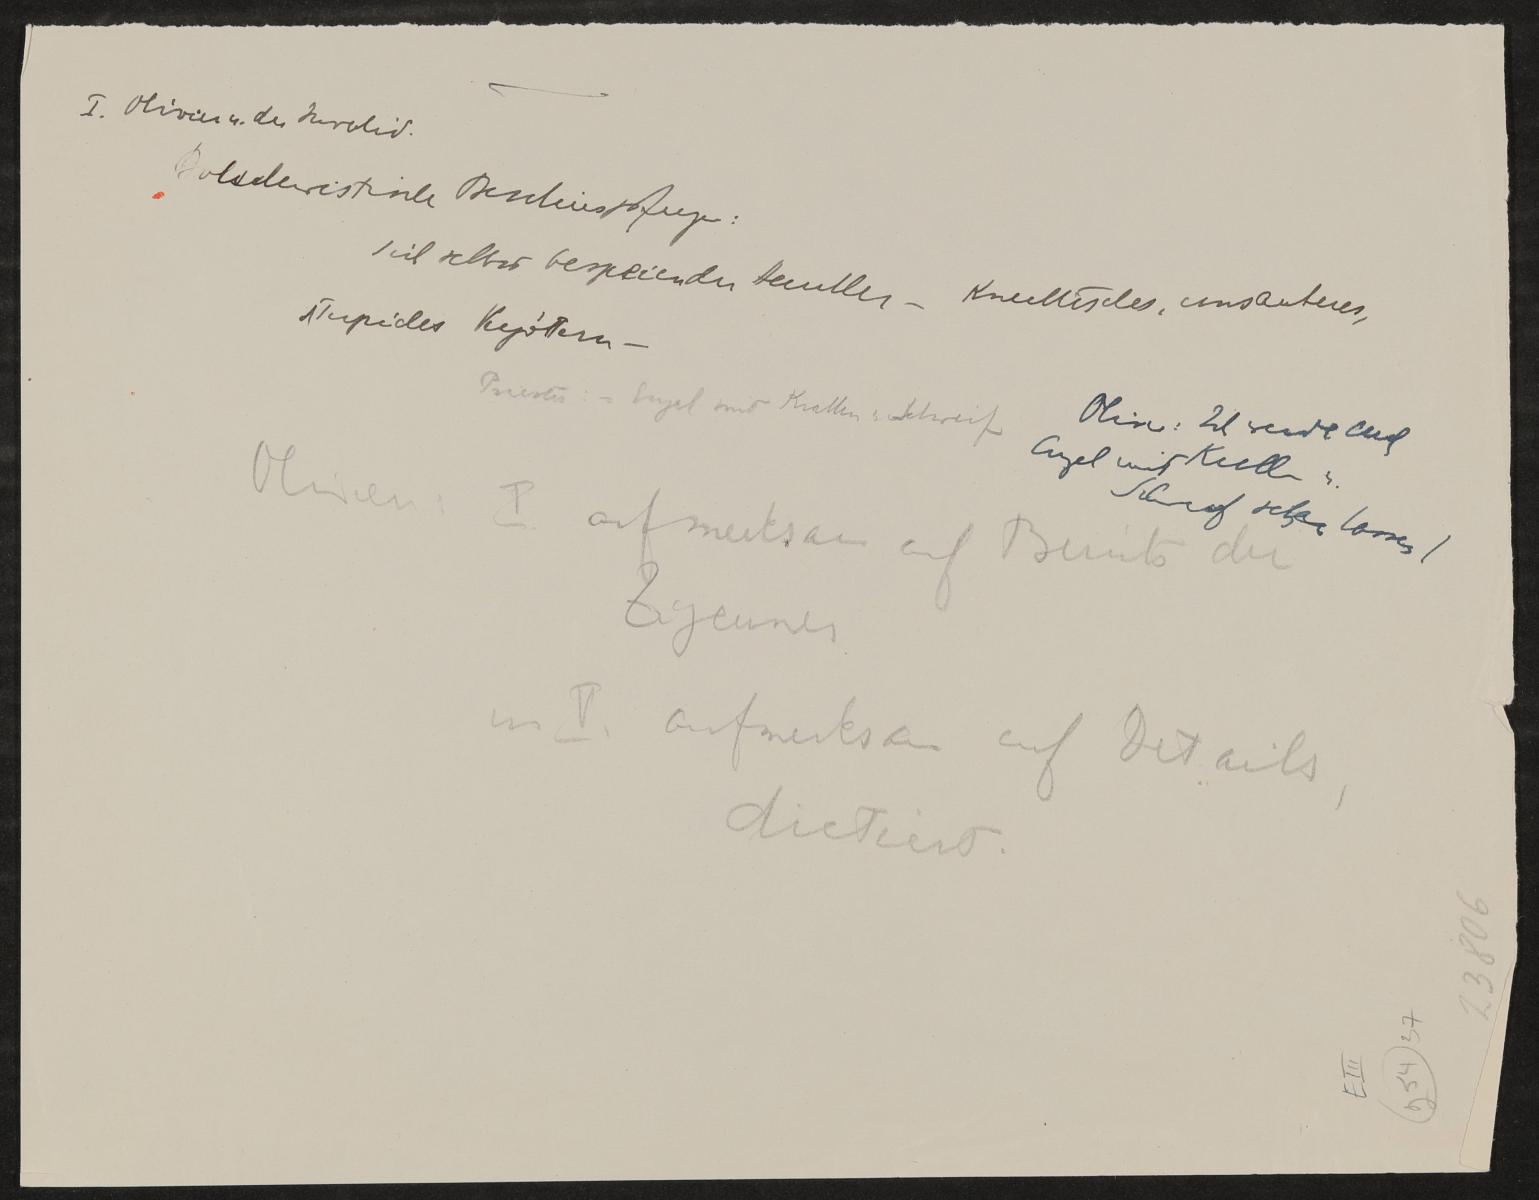 I. Olivier u. der Invalid.
Bolschewistische
sich selbst bespeiender – Knechtisches, unsauberes,
stupides –
Priester: – Engel mit Krallen u. Schweif
Olivier: Ich werde auch
Engel mit Krallen u.
Schweif sehen lassen!
Olivier: I. aufmerksam auf Bericht der
Zigeuner
in V. aufmerksam auf Details,
dictiert.
23806
EIII
37